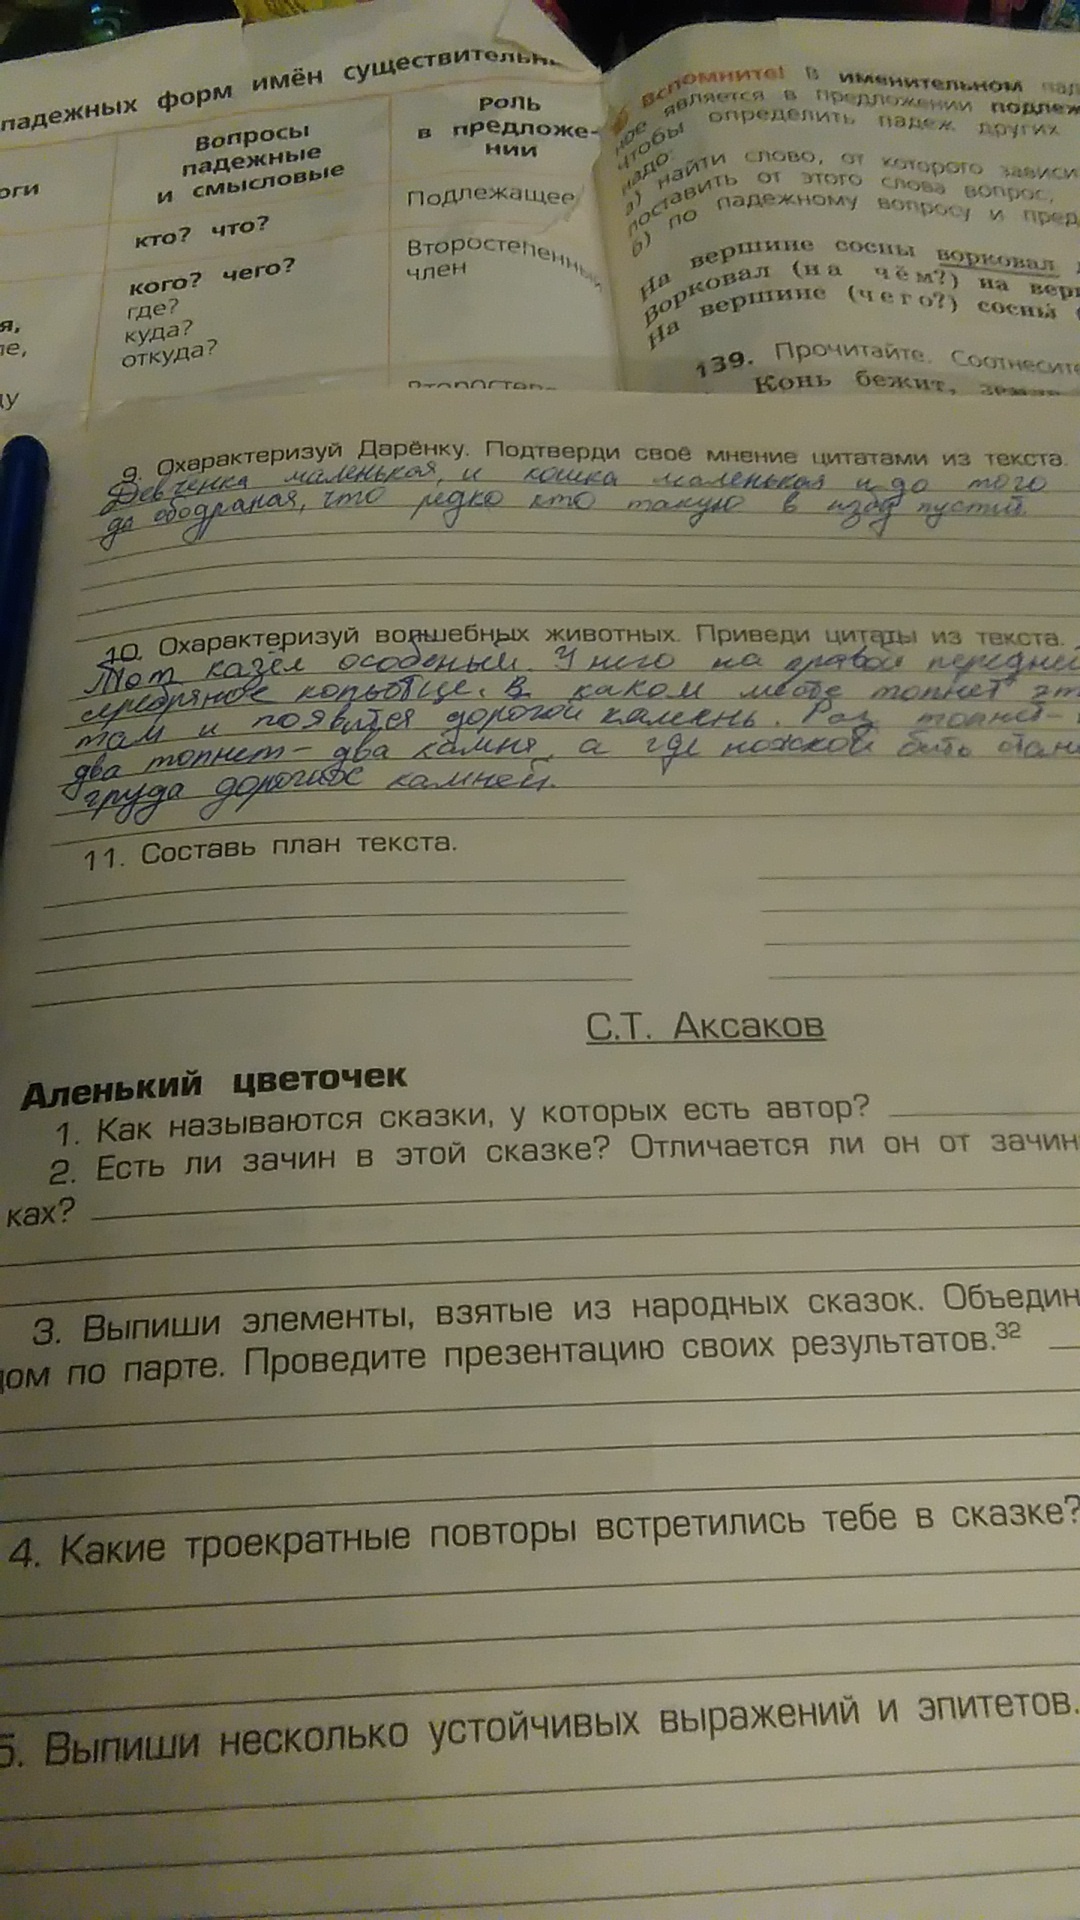 падежных форм имён существительн
оги
Вопросы
падежные
и смысловые
Роль
в предложе-
нии
кто? что?
Подлежащее
кого? чего?
где?
куда?
откуда?
Второстепенный
член
я,
ле,
Вспомните! В именительном пад
ное является в предложении подлеж
Чтобы определить падеж других
надо:
а) найти слово, от которого зависи
поставить от этого слова вопрос,
б) по падежному вопросу и пред
На вершине сосны ворковал
Ворковал (на чём?) на верш
На вершине (чего?) сосны (
139. Прочитайте. Соотнесите
Конь бежит,
9. Охарактеризуй Дарёнку. Подтверди своё мнение цитатами из текста.
Девчёнка маленькая, и кошка маленькая и до того
до ободраная, что редко кто такую в избу пустит.
10. Охарактеризуй волшебных животных. Приведи цитаты из текста.
Тот казёл особеный. У него на правой передней
серебряное копытце. В каком месте топнет эт
там и появится дорогой камень. Раз топнет -
два топнет - два камня, а где ножкой бить стан
груда дорогих камней.
11. Составь план текста.
С.Т. Аксаков
Аленький цветочек
1. Как называются сказки, у которых есть автор?
2. Есть ли зачин в этой сказке? Отличается ли он от зачин
ках?
3. Выпиши элементы, взятые из народных сказок. Объедин
дом по парте. Проведите презентацию своих результатов.32
4. Какие троекратные повторы встретились тебе в сказке?
5. Выпиши несколько устойчивых выражений и эпитетов.